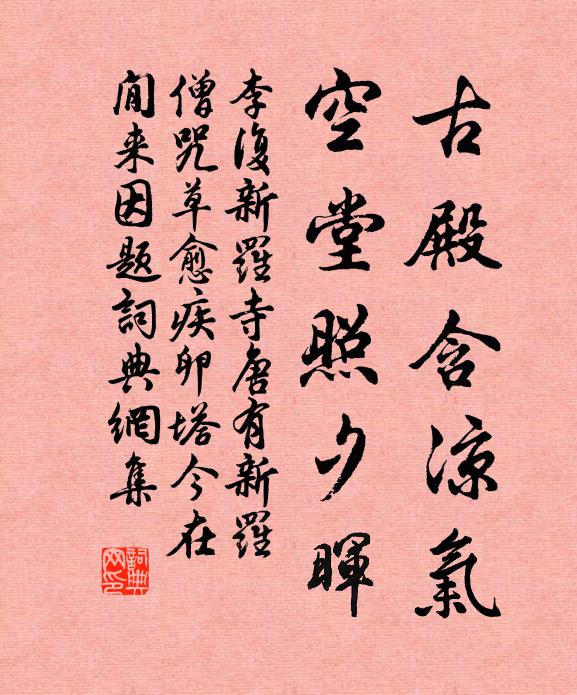 古殿含涼氣
空堂照夕暉
李復新羅寺唐有新羅
僧咒草愈疾卵塔今在
閒来因題詞典網集
詞典網印